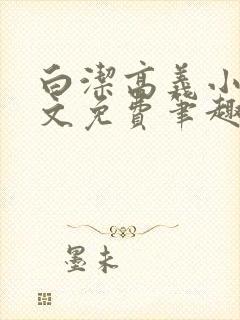 白潔高義小
文免費筆趣
墨未